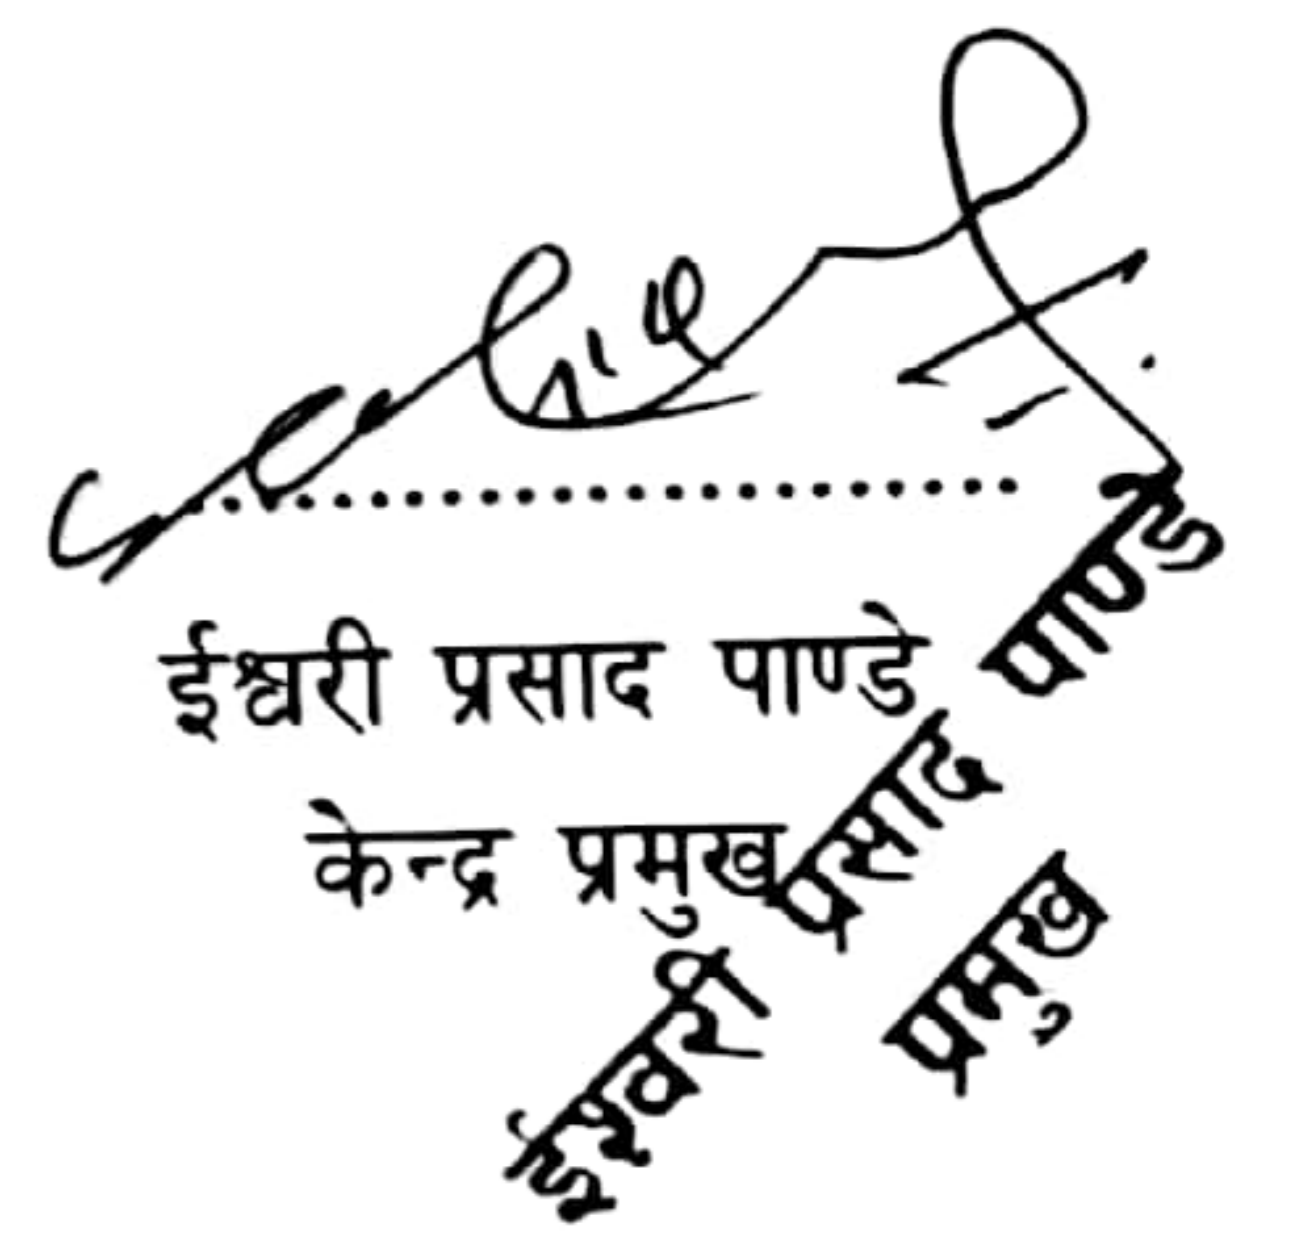 ईश्वरी प्रसाद पाण्डे
केन्द्र प्रमुख
ईश्वरी प्रसाद पाण्डे
प्रमुख